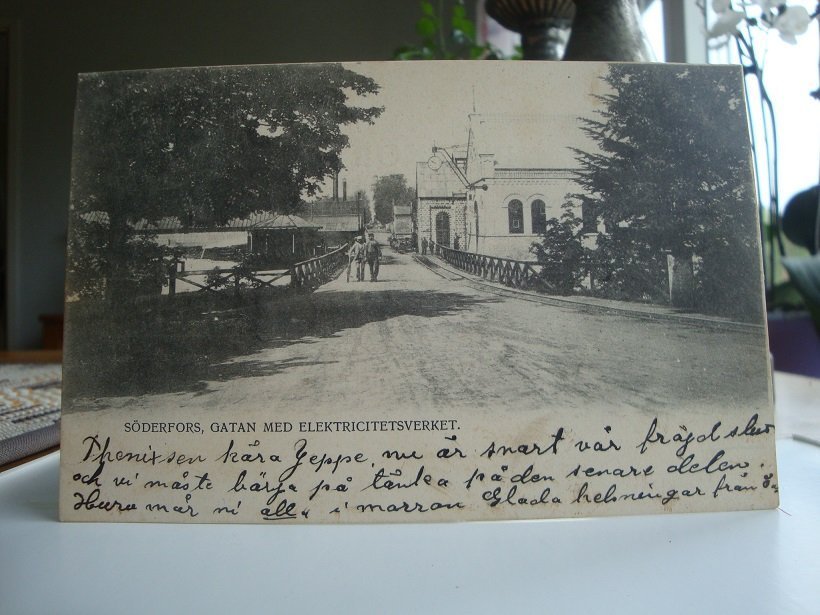 SÖDERFORS, GATAN MED ELEKTRICITETSVERKET.
kära Jeppe, nu är snart vår fräjd slut
och vi måste börja på tänka på den senare delen.
Huru mår ni alla i morron Glada helsningar från